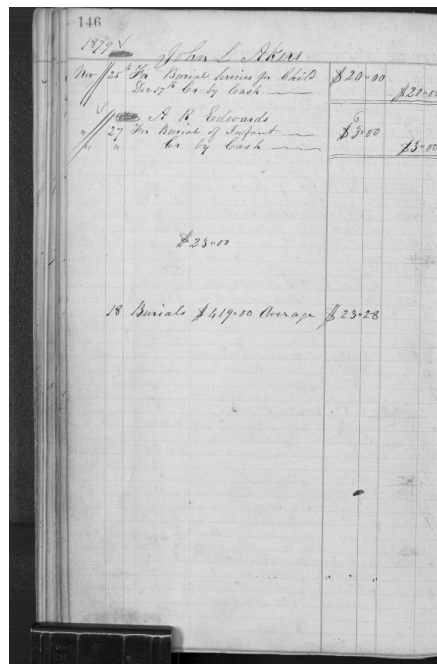 146
1879
John L Akers
Nov 25th For Burial Services for Child $20.00
Dec 17th Cr by Cash $20.00
A R Edwards
" 27 For Burial of Infant $3.00
" " Cr by Cash $3.00
$23.00
18 Burials $419.00 Average $23.28